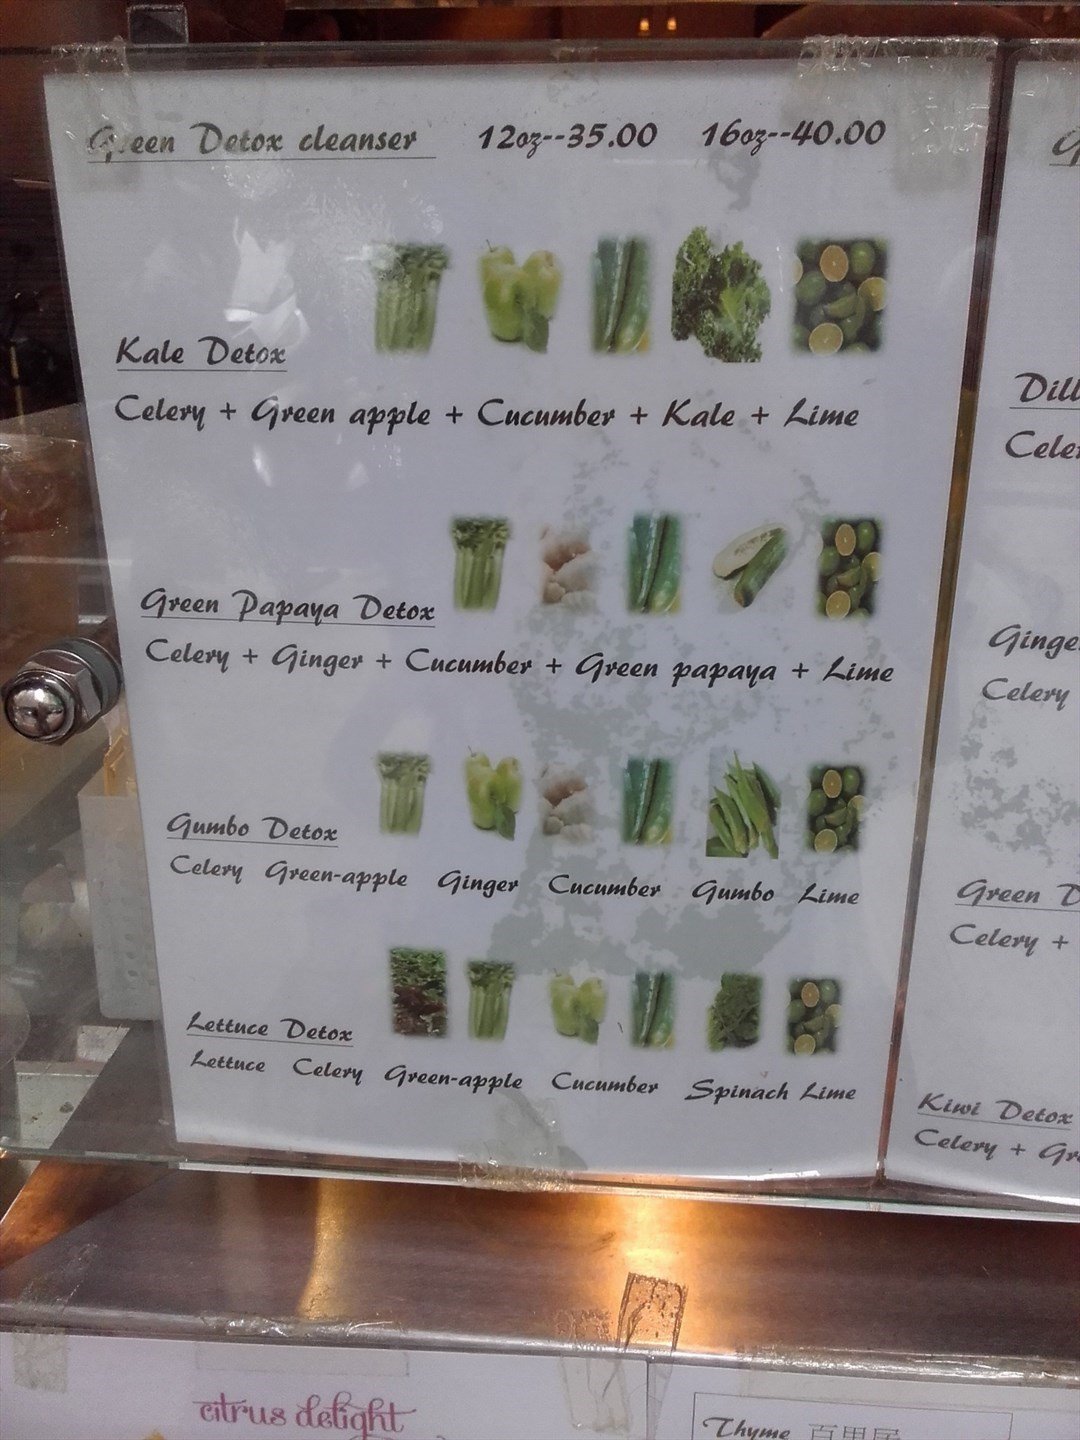 Green Detox cleanser 12oz--35.00 16oz--40.00
Kale Detox
Celery + Green apple + Cucumber + Kale + Lime
Green Papaya Detox
Celery + Ginger + Cucumber + Green papaya + Lime
Gumbo Detox
Celery Green-apple Ginger Cucumber Gumbo Lime
Lettuce Detox
Lettuce Celery Green-apple Cucumber Spinach Lime
G
Dill
Celer
Ginge
Celery
Green D
Celery +
Kiwi Detox
Celery + Gr
citrus delight
Thyme 百里居